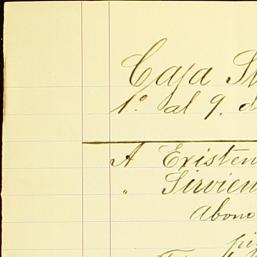 Caja
1º al 9. d
A Existen
" Sirvien
Abono